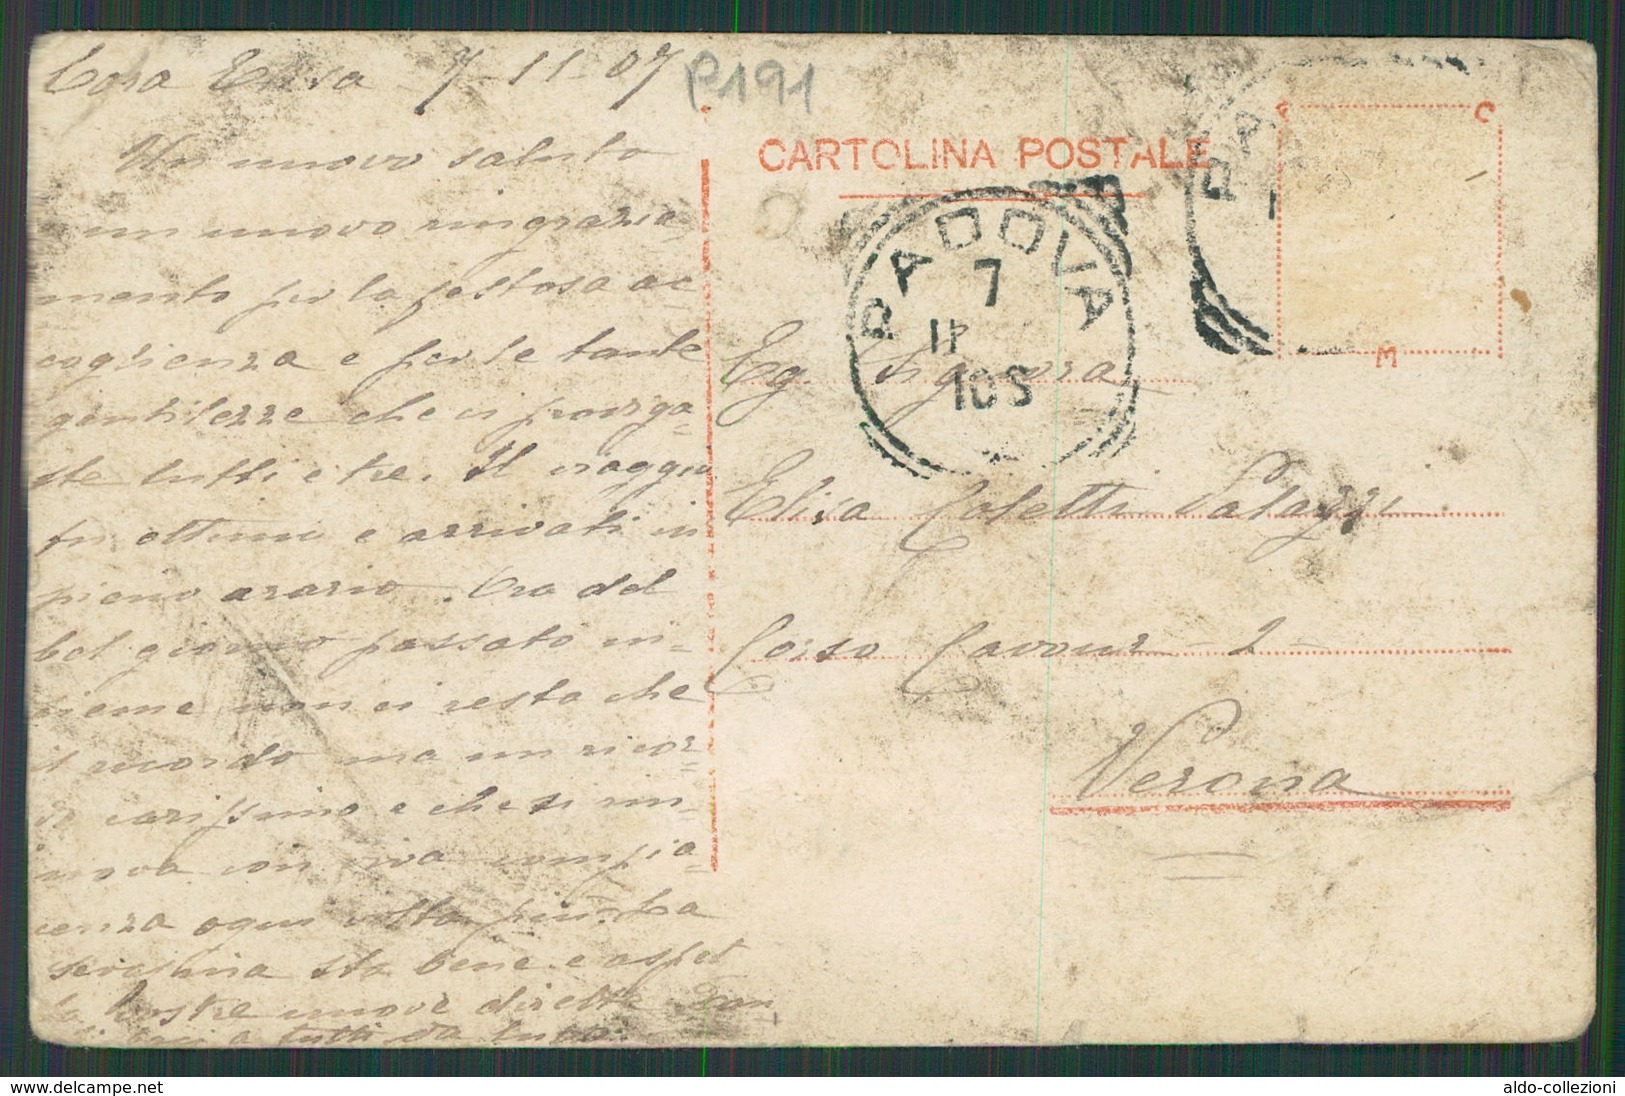 Cara Elisa 7-11-07
P191
Un nuovo saluto
e un nuovo ringrazia=
mento per la festosa ac=
coglienza e per le tante
gentilezze che ci prodiga=
ste tutti e tre. Il viaggio
fu ottimo e arrivati in
pieno orario. Ora del
bel giorno passato in-
sieme non ci resta che
il ricordo ma un ricor=
do carissimo e che si rin=
nova con viva compia=
cenza ogni volta più. La
sta bene e aspet
ta Vostre nuove dirette
a tutti da tutti.
CARTOLINA POSTALE
F C
M
PADOVA
7
11
10S
PA
Eg. Signora
Elisa Coletti Palazzi
Corso Cavour - 2 -
Verona
delcampe.net
aldo-collezioni